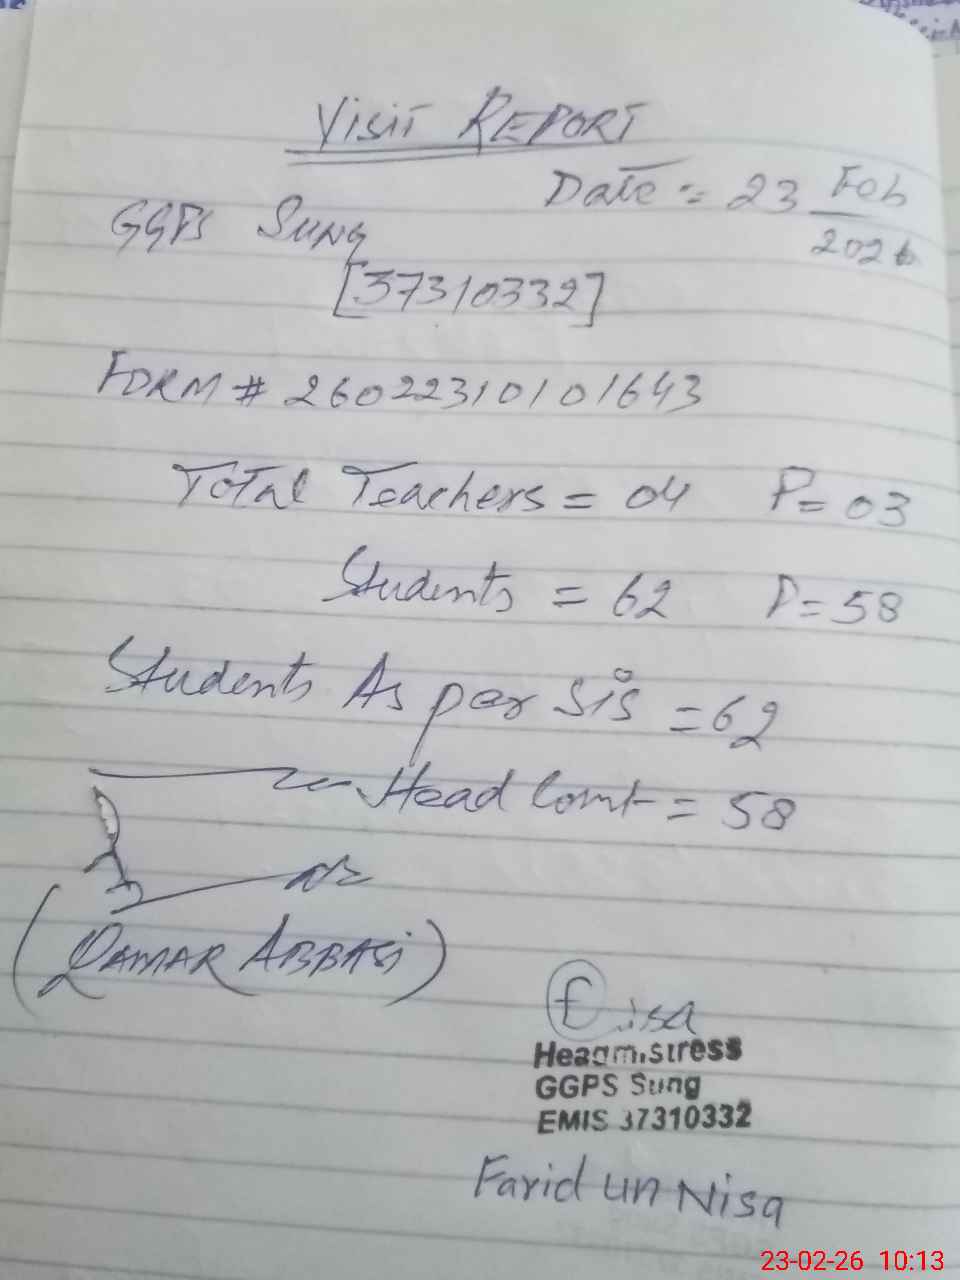 Visit REPORT
Date := 23 Feb
2026
GGPS Sung
[37310332]
FORM # 26022310101643
Total Teachers = 04 P= 03
Students = 62 P= 58
Students As per SiS = 62
Head Count = 58
(QAMAR ABBASI)
Headmistress
GGPS Sung
EMIS 37310332
Farid un Nisa
23-02-26 10:13